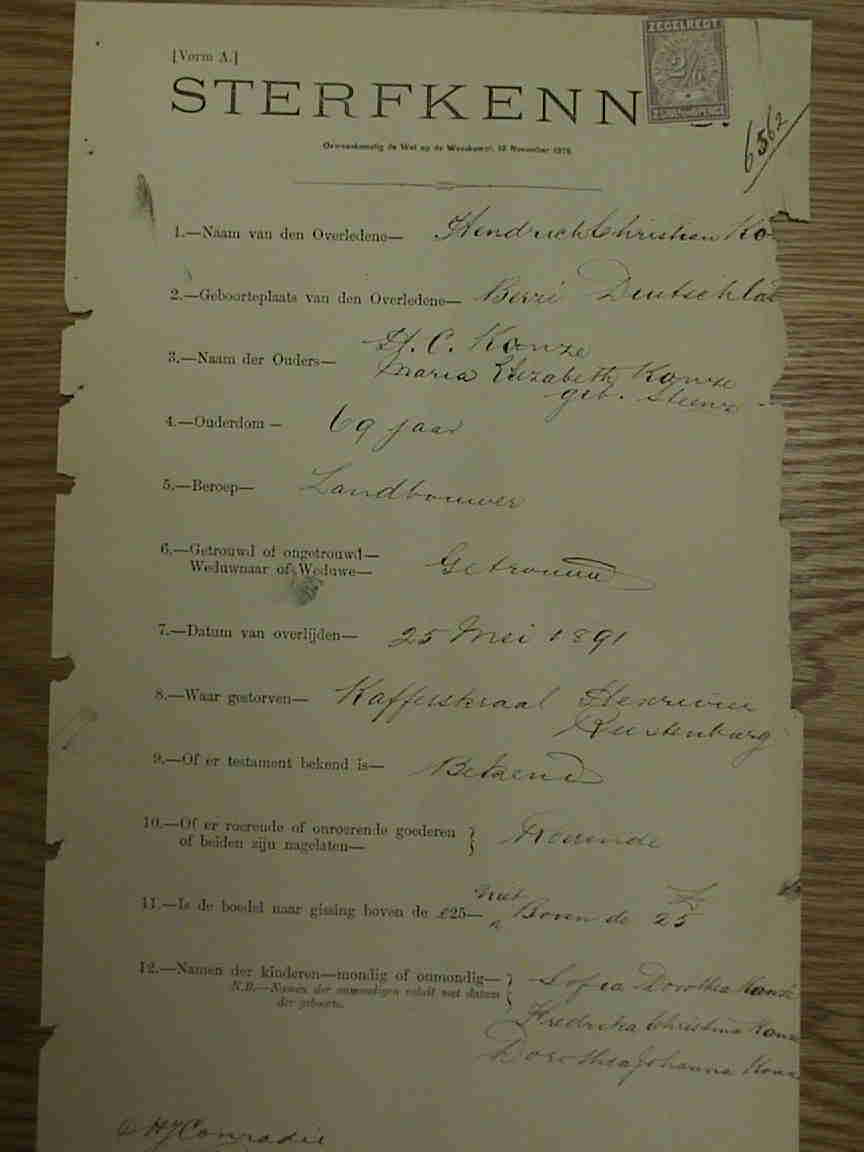 [Vorm A.]
ZEGELREGT
STERFKENN
Overeenkomstig de Wet op de Weeskamer, 12 November 1870
6562
1.—Naam van den Overledene— Hendrich Christian Ko
2.—Geboorteplaats van den Overledene— Deutschla
3.—Naam der Ouders— H. C. Konze
Maria Elizabeth Konze
geb.
4.—Ouderdom— 69 jaar
5.—Beroep— Landbouwer
6.—Getrouwd of ongetrouwd—
Weduwnaar of Weduwe— Getrouwd
7.—Datum van overlijden— 25 Mei 1891
8.—Waar gestorven— Kafferskraal Hexrivier
Rustenburg
9.—Of er testament bekend is— Bekend
10.—Of er roerende of onroerende goederen
of beiden zijn nagelaten— Roerende
11.—Is de boedel naar gissing boven de £25— niet Boven de £25
12.—Namen der kinderen—mondig of onmondig— Sofia Dorothea Konze
N.B.—Namen der onmondigen voluit met datum
der geboorte.
Fredrika Christina Konz
Dorothea Johanna Konz
HJ Conradie